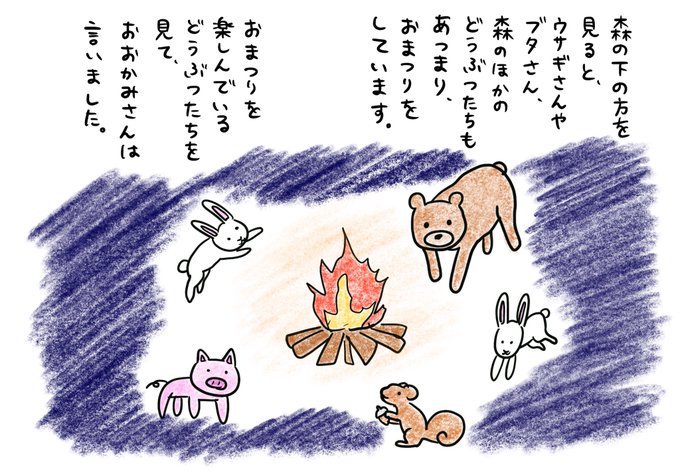 森の下の方を
見ると、
ウサギさんや
ブタさん、
森のほかの
どうぶつたちも
あつまり、
おまつりを
しています。
おまつりを
楽しんでいる
どうぶつたちを
見て、
おおかみさんは
言いました。